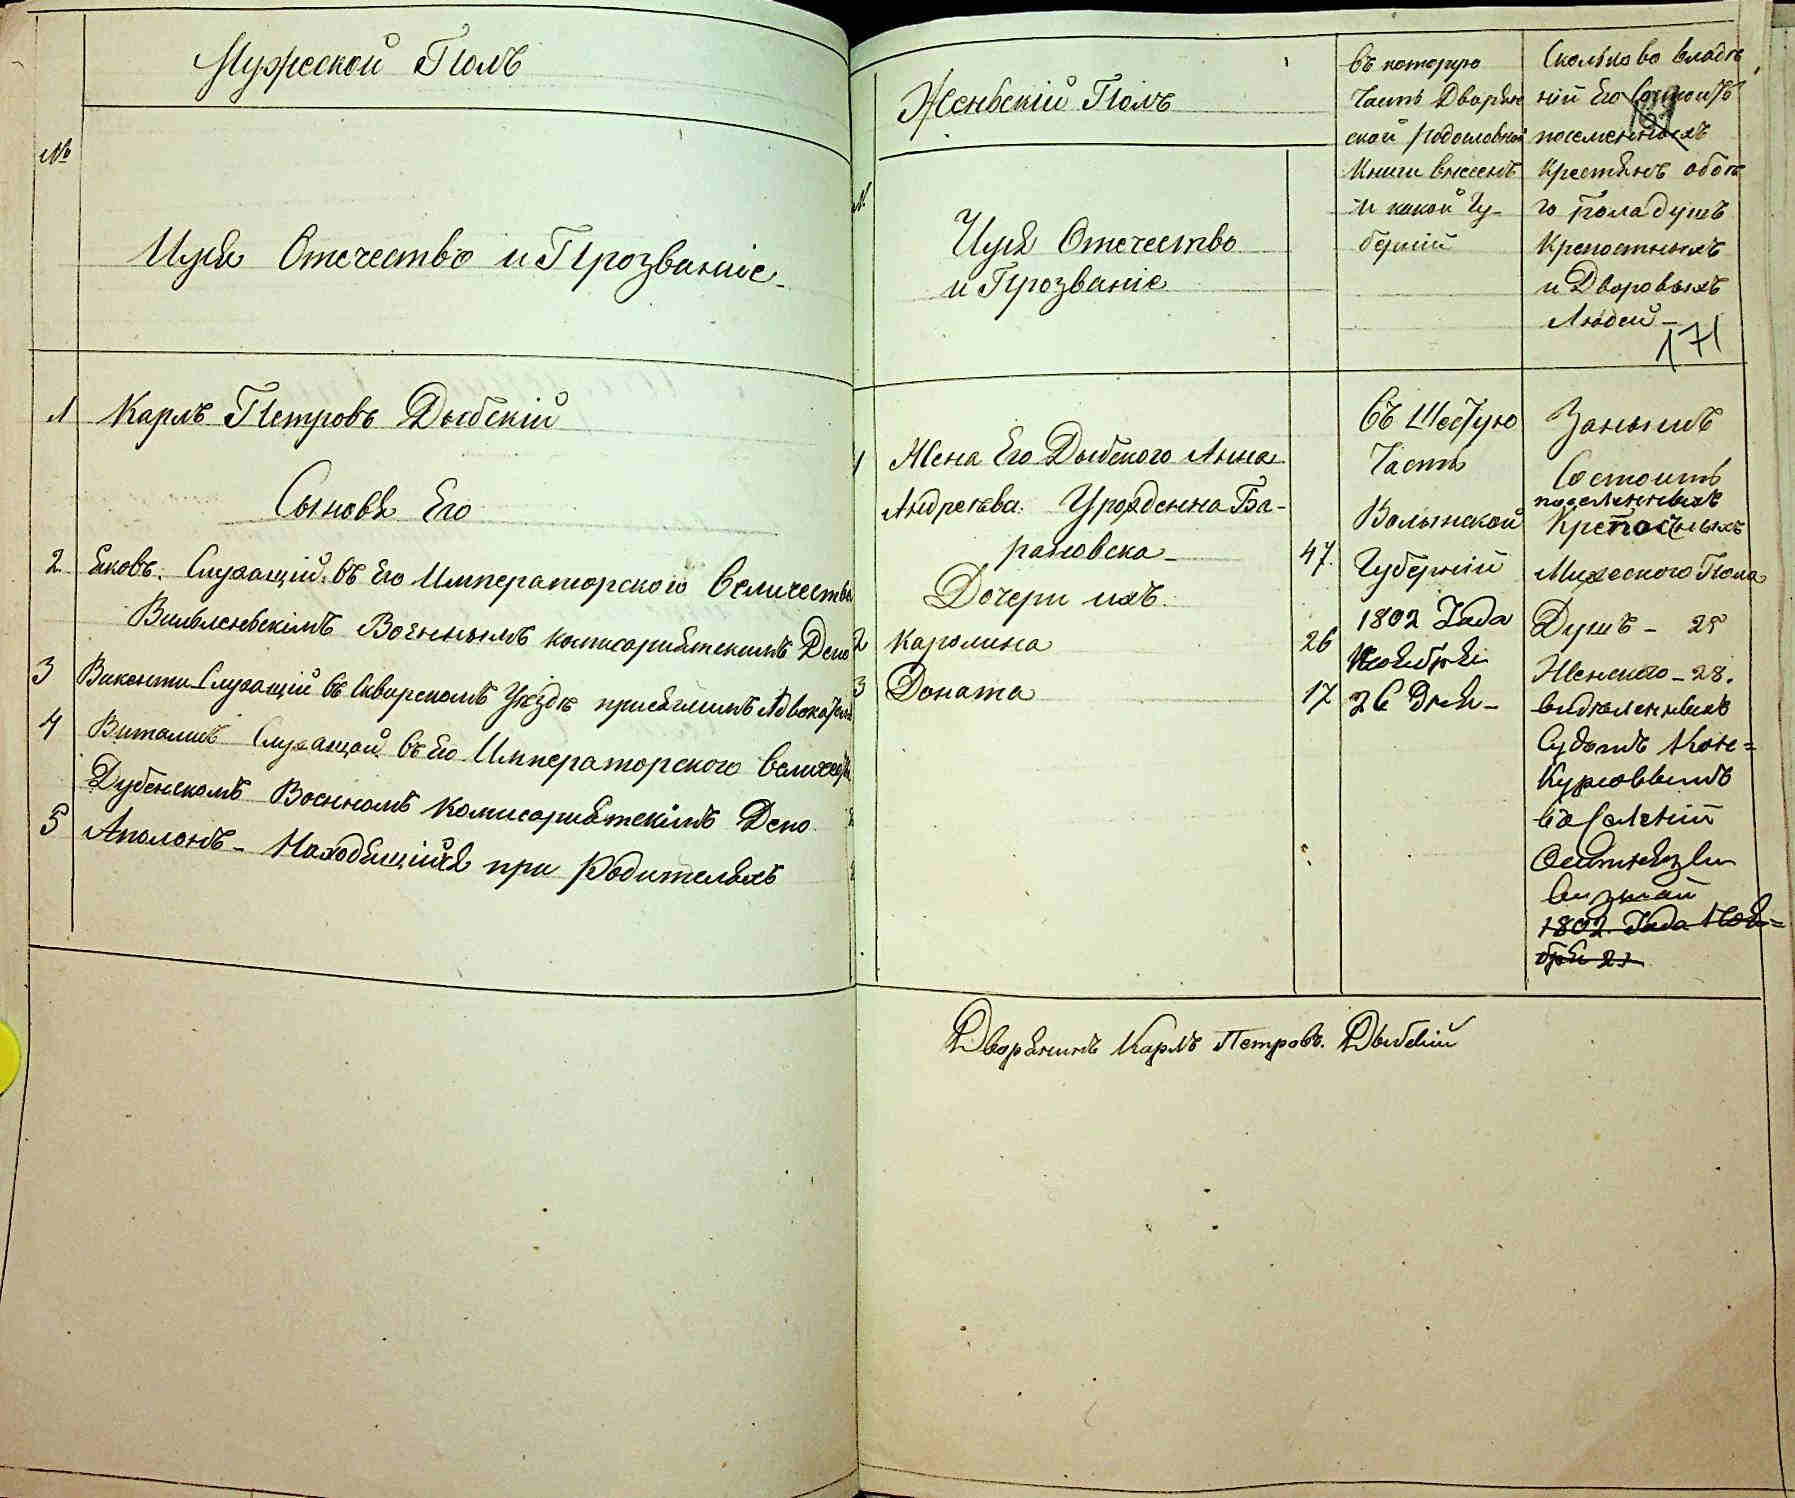 Мужеской Полъ
№
Имя Отечество и Прозваніе
1 Карлъ Петровъ Дыбскій
Сыновя Его
2 Яковъ. Служащій въ Его Императорского Величества
Вильленьскімъ Военнымъ комисариятскимъ Депо
3 Викенти Служащій въ Сквирскомъ Уездѣ присяглимъ Адвока
4 Виталисъ Служащой въ Его Императорского Величест
Дубенскомъ Военномъ Комисариятскімъ Депо
5 Аполонъ - Находящійся при Родителяхъ
Женьскій Полъ
№
Имя Отечество
и Прозваніе
1 Жена Его Дыбского Анна
Андреѣва Урожденна Ба-
рановска 47.
Дочери ихъ.
2 Каролина 26
3 Доната 17
въ которую
Часть Дворян
ской Родословной
Книги внесенъ
и какой Гу-
берніи
Въ Шестую
Часть
Волынской
Губерній
1802 Года
Ноябрѣ
26 Дня -
Сколько во владѣ
ній Его Состоитъ
поселенныхъ
Крестянъ обоѣ
го Пола душъ
Крепостныхъ
и Дворовыхъ
Людей -
171
Занымъ
Состоитъ
поселенныхъ
Крепостныхъ
Мужеского Пола
Душъ - 25
Женского - 28.
видѣленныхъ
Судомъ Конъ=
курсовымъ
1802. Года Ноя=
бря 21
Дворянинъ Карлъ Петровъ. Дыбскій